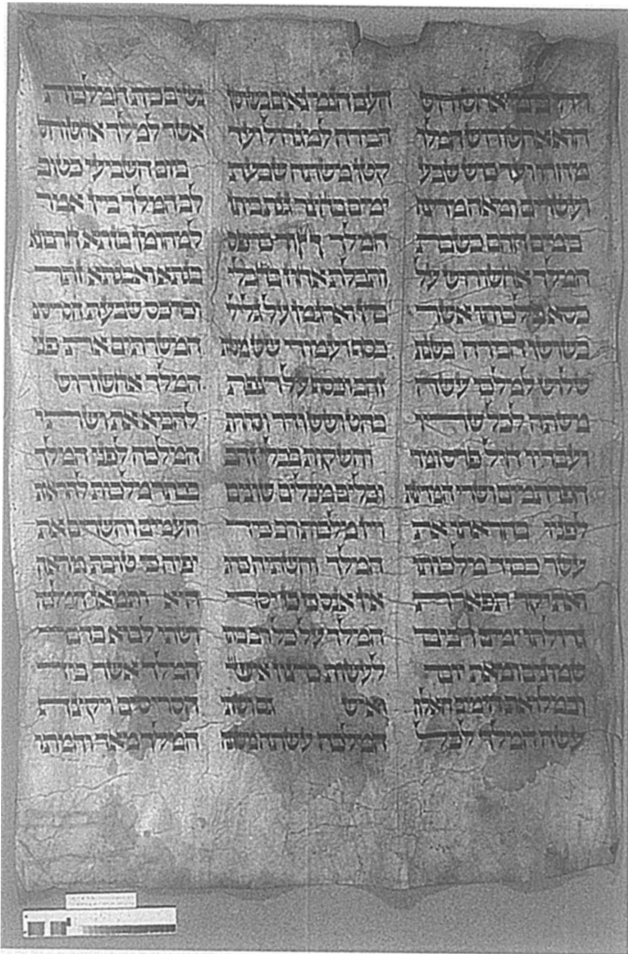 ויהי בימי אחשורוש
הוא אחשורוש המלך
מהודו ועד כוש שבע
ועשרים ומאה מדינה
בימים ההם כשבת
המלך אחשורוש על
כסא מלכותו אשר
בשושן הבירה בשנת
שלוש למלכו עשה
משתה לכל שריו
ועבדיו חיל פרס ומדי
הפרתמים ושרי המדינות
לפניו בהראתו את
עשר כבוד מלכותו
ואת יקר תפארת
גדולתו ימים רבים
שמונים ומאת יום
ובמלואת הימים האלה
עשה המלך לכל
העם הנמצאים בשושן
הבירה למגדול ועד
קטן משתה שבעת
ימים בחצר גנת ביתן
המלך חור כרפס
ותכלת אחוז בחבלי
בוץ וארגמן על גלילי
כסף ועמודי שש מטות
זהב וכסף על רצפת
בהט ושש ודר וסחרת
והשקות בכלי זהב
וכלים מכלים שונים
ויין מלכות רב כיד
המלך והשתיה כדת
אין אנס כי כן יסד
המלך על כל רב ביתו
לעשות כרצון איש
ואיש גם ושתי
המלכה עשתה משתה
נשים בית המלכות
אשר למלך אחשורוש
ביום השביעי כטוב
לב המלך ביין אמר
למהומן בזתא חרבונא
בגתא ואבגתא זתר
וכרכס שבעת הסריסים
המשרתים את פני
המלך אחשורוש
להביא את ושתי
המלכה לפני המלך
בכתר מלכות להראות
העמים והשרים את
יפיה כי טובת מראה
היא ותמאן המלכה
ושתי לבוא בדבר
המלך אשר ביד
הסריסים ויקצף
המלך מאד וחמתו